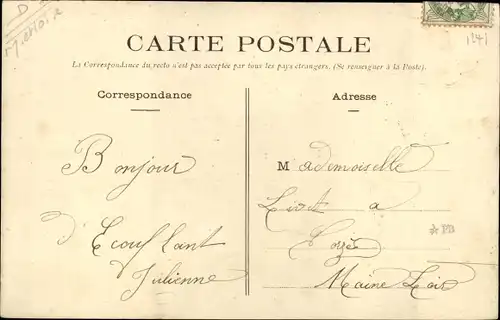 CARTE POSTALE
La Correspondance du recto n'est pas acceptée par tous les pays étrangers. (Se renseigner à la Poste).
Correspondance
Bonjour
d'Ecouflant
Julienne
Adresse
Mademoiselle
a
Corzé
Maine Loire